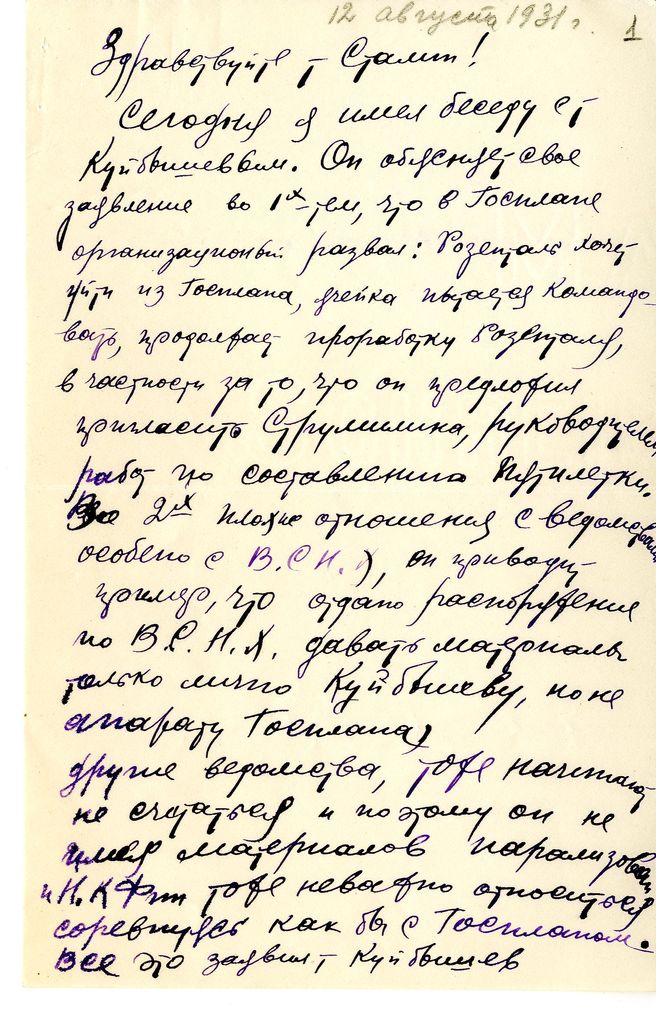 12 августа 1931 г.
1
Здравствуйте т Сталин!
Сегодня я имел беседу с т
Куйбышевым. Он объясняет свое
заявление во 1х тем, что в Госплане
организационый развал: Розенталь хочет
уйти из Госплана, ячейка пытается командо-
вать, продолжает проработку Розенталя,
в частности за то, что он предложил
пригласить Струмилина, руководителем
работ по составлению пятилетки.
Во 2х плохие отношения с ведомствами
особено с В.С.Н.Х, он приводит
пример, что отдано распоряжение
по В.С.Н.Х. давать материалы
только лично Куйбышеву, но не
апарату Госплана,
другие ведомства, тоже начинают
не считаться и поэтому он не
имея материалов парализован
и Н.К.Фин тоже неважно относиться
соревнуясь как бы с Госпланом.
Все это заявил т Куйбышев